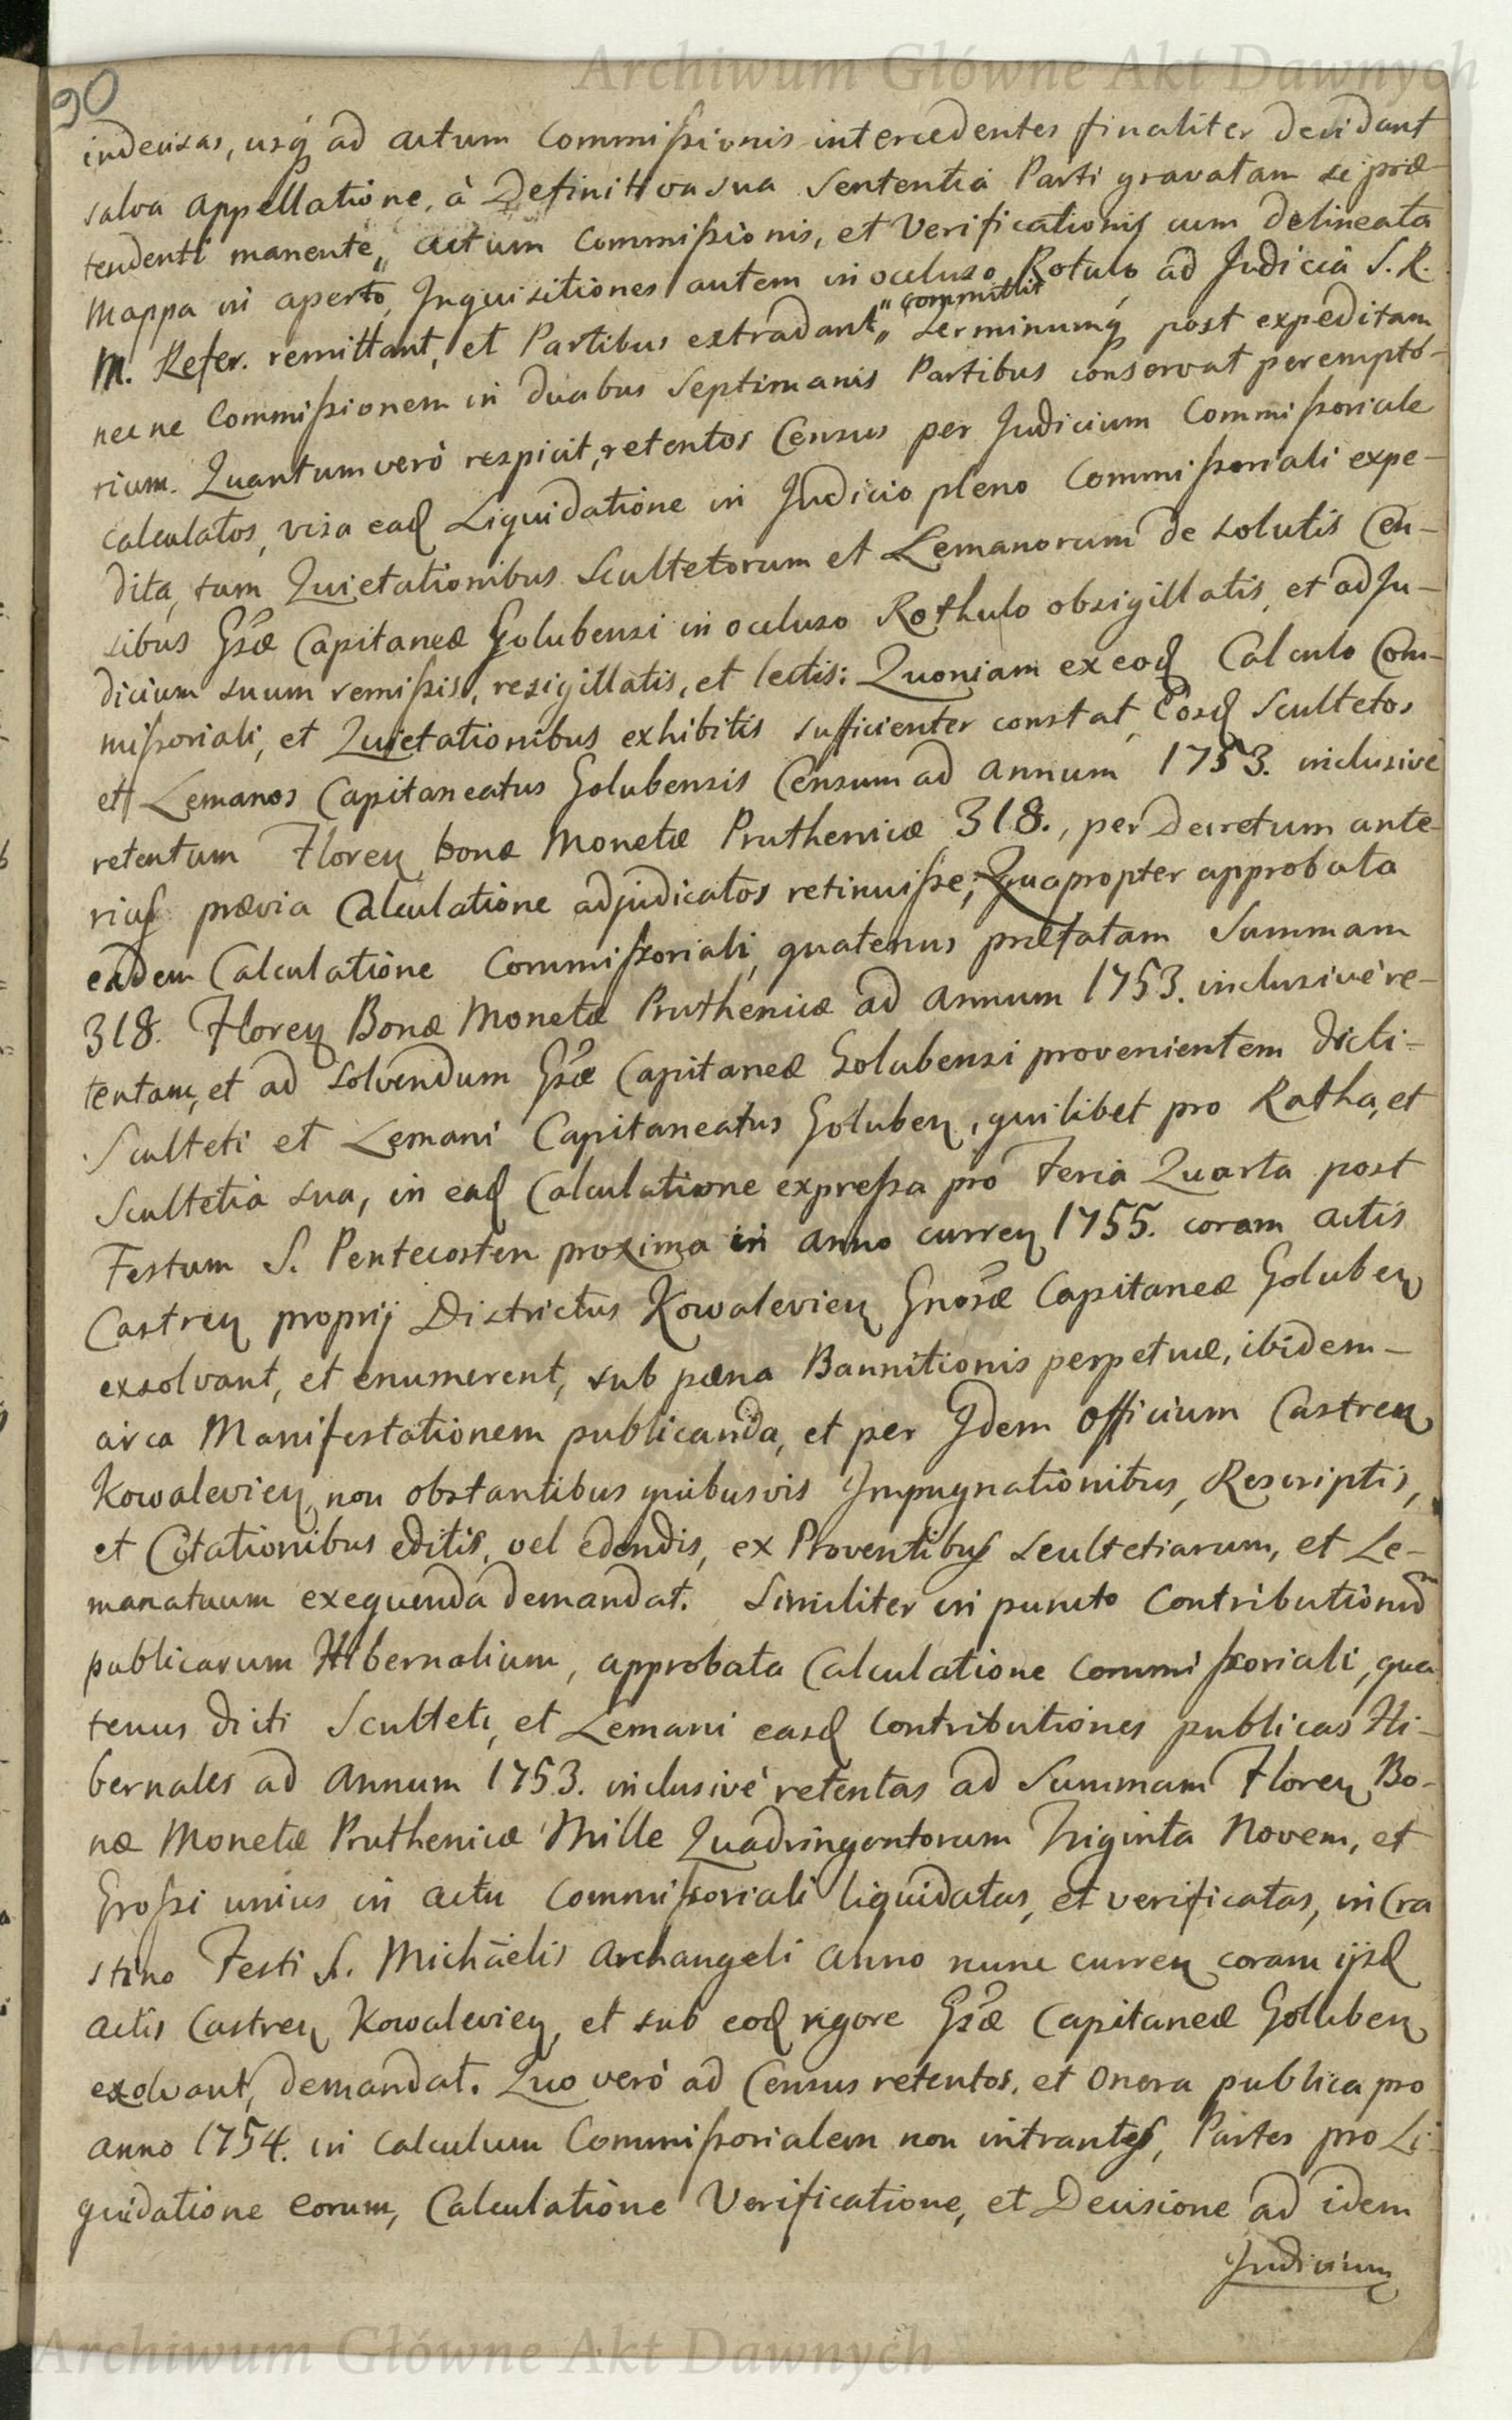 Archiwum Główne Akt Dawnych
90
indecisas, usq ad actum Commissionis intercedentes finaliter decidant
salva appellatione, à Definitiva sua Sententia Parti gravatam se præ-
tendenti manente„ actum Commissionis, et Verificationis cum delineata
Mappa in aperto, Inquisitiones autem in occluso Rotulo ad Judicia S. R.
M. Refer. remittant, et Partibus extradant„ „committit Terminumq post expeditam
nec ne Commissionem in duabus Septimanis Partibus conservat perempto-
rium. Quantum verò respicit, retentos Census per Judicium Commissoriale
calculatos, visa eadꝫ Liquidatione in Judicio pleno Commissoriali expe-
dita, tum Quietationibus Scultetorum et Lemanorum de solutis Cen-
sibus Gsæ Capitaneæ Golubensi in occluso Rothulo obsigillatis, et ad Ju-
dicium suum remissis, resigillatis, et lectis: Quoniam ex eodꝫ Calculo Com-
missoriali, et Quietationibus exhibitis sufficienter constat, Eosdꝫ Scultetos
et Lemanos Capitaneatus Golubensis Censum ad annum 1753. inclusivè
retentum Floren bonæ Monetæ Pruthenicæ 318., per Decretum ante-
rius prævia Calculatione adjudicatos retinuisse; Quapropter approbata
eadem Calculatione Commissoriali, quatenus præfatam Summam
318. Floren Bonæ Monetæ Pruthenicæ ad annum 1753. inclusivè re-
tentam, et ad solvendum Gsæ Capitaneæ Golubensi provenientem dicti-
Sculteti et Lemani Capitaneatus Goluben, quilibet pro Ratha, et
Scultetia sua, in eadꝫ Calculatione expressa pro Feria Quarta post
Festum S. Pentecosten proxima in anno curren 1755. coram actis
Castren proprij Districtus Kowalevien Gnosæ Capitaneæ Goluben
exsolvant, et enumerent, sub pæna Bannitionis perpetuæ, ibidem-
circa Manifestationem publicanda, et per Idem Officium Castren
Kowalevien, non obstantibus quibusvis Impugnationibus, Rescriptis,
et Citationibus editis, vel edendis, ex Proventibus Scultetiarum, et Le-
manatuum exequenda demandat. Similiter in puncto Contributionum
publicarum Hibernalium, approbata Calculatione Commissoriali, qua
tenus dicti Sculteti, et Lemani easdꝫ Contributiones publicas Hi-
bernales ad annum 1753. inclusivè retentas ad Summam Floren Bo-
næ Monetæ Pruthenicæ Mille Quadringentorum Triginta Novem, et
Grossi unius in actu Commissoriali liquidatas, et verificatas, in Cra
stino Festi S. Michäelis Archangeli anno nunc curren coram ijsdꝫ
actis Castren Kowalevien, et sub eodꝫ rigore Gsæ Capitaneæ Goluben
exolvant, demandat. Quo verò ad Census retentos, et Onera publica pro
anno 1754. in Calculum Commissorialem non intrantes, Partes pro Li-
quidatione eorum, Calculatione Verificatione, et Decisione ad idem
Judicium
Archiwum Główne Akt Dawnych